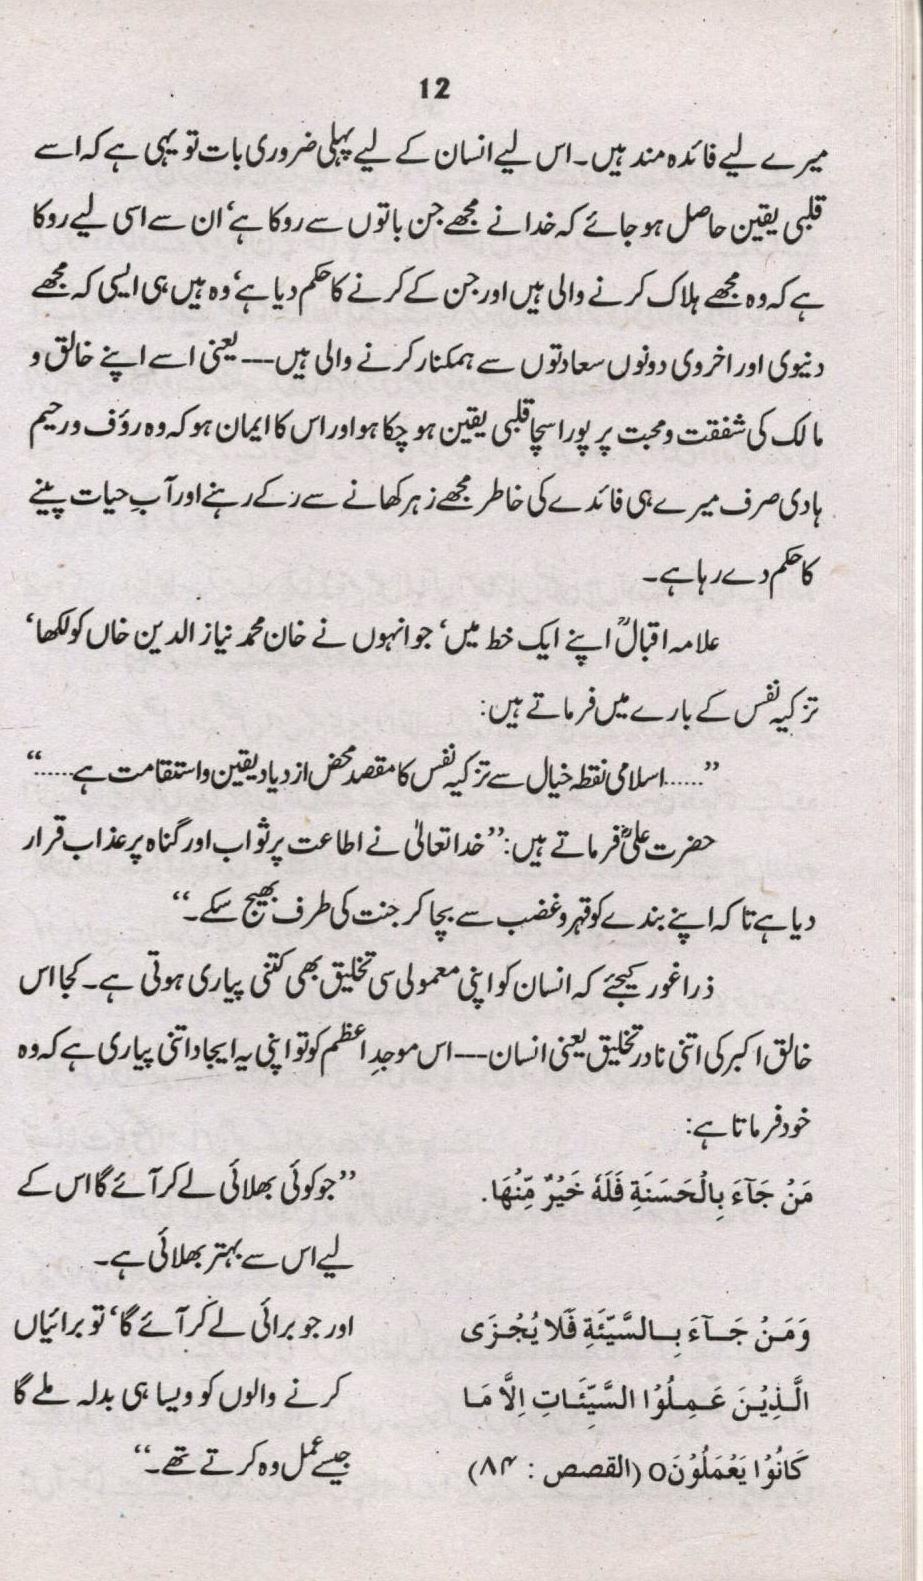 12
میرے لیے فائدہ مند ہیں۔ اس لیے انسان کے لیے پہلی ضروری بات تو یہی ہے کہ اسے
قلبی یقین حاصل ہو جائے کہ خدا نے مجھے جن باتوں سے روکا ہے‘ ان سے اسی لیے روکا
ہے کہ وہ مجھے ہلاک کرنے والی ہیں اور جن کے کرنے کا حکم دیا ہے‘ وہ ہیں ہی ایسی کہ مجھے
دنیوی اور اخروی دونوں سعادتوں سے ہمکنار کرنے والی ہیں --- یعنی اسے اپنے خالق و
مالک کی شفقت و محبت پر پورا سچا قلبی یقین ہو چکا ہو اور اس کا ایمان ہو کہ وہ رؤف و رحیم
ہادی صرف میرے ہی فائدے کی خاطر مجھے زہر کھانے سے رُکے رہنے اور آبِ حیات پینے
کا حکم دے رہا ہے۔
علامہ اقبالؒ اپنے ایک خط میں‘ جو انہوں نے خان محمد نیاز الدین خاں کو لکھا‘
تزکیہ نفس کے بارے میں فرماتے ہیں:
”......اسلامی نقطہ خیال سے تزکیہ نفس کا مقصد محض ازدیاد یقین و استقامت ہے......“
حضرت علیؓ فرماتے ہیں: ”خدا تعالیٰ نے اطاعت پر ثواب اور گناہ پر عذاب قرار
دیا ہے تا کہ اپنے بندے کو قہر و غضب سے بچا کر جنت کی طرف بھیج سکے۔“
ذرا غور کیجئے کہ انسان کو اپنی معمولی سی تخلیق بھی کتنی پیاری ہوتی ہے۔ کجا اس
خالق اکبر کی اتنی نادر تخلیق یعنی انسان --- اس موجدِ اعظم کو تو اپنی یہ ایجاد اتنی پیاری ہے کہ وہ
خود فرماتا ہے:
مَنْ جَآءَ بِالْحَسَنَةِ فَلَهٗ خَيْرٌ مِّنْهَا.
”جو کوئی بھلائی لے کر آئے گا اس کے
لیے اس سے بہتر بھلائی ہے۔
وَمَنْ جَآءَ بِالسَّيِّئَةِ فَلَا يُجْزَى
الَّذِيْنَ عَمِلُوا السَّيِّئَاتِ اِلَّا مَا
كَانُوْا يَعْمَلُوْنَ0 (القصص : ۸۴)
اور جو برائی لے کر آئے گا‘ تو برائیاں
کرنے والوں کو ویسا ہی بدلہ ملے گا
جیسے عمل وہ کرتے تھے۔“